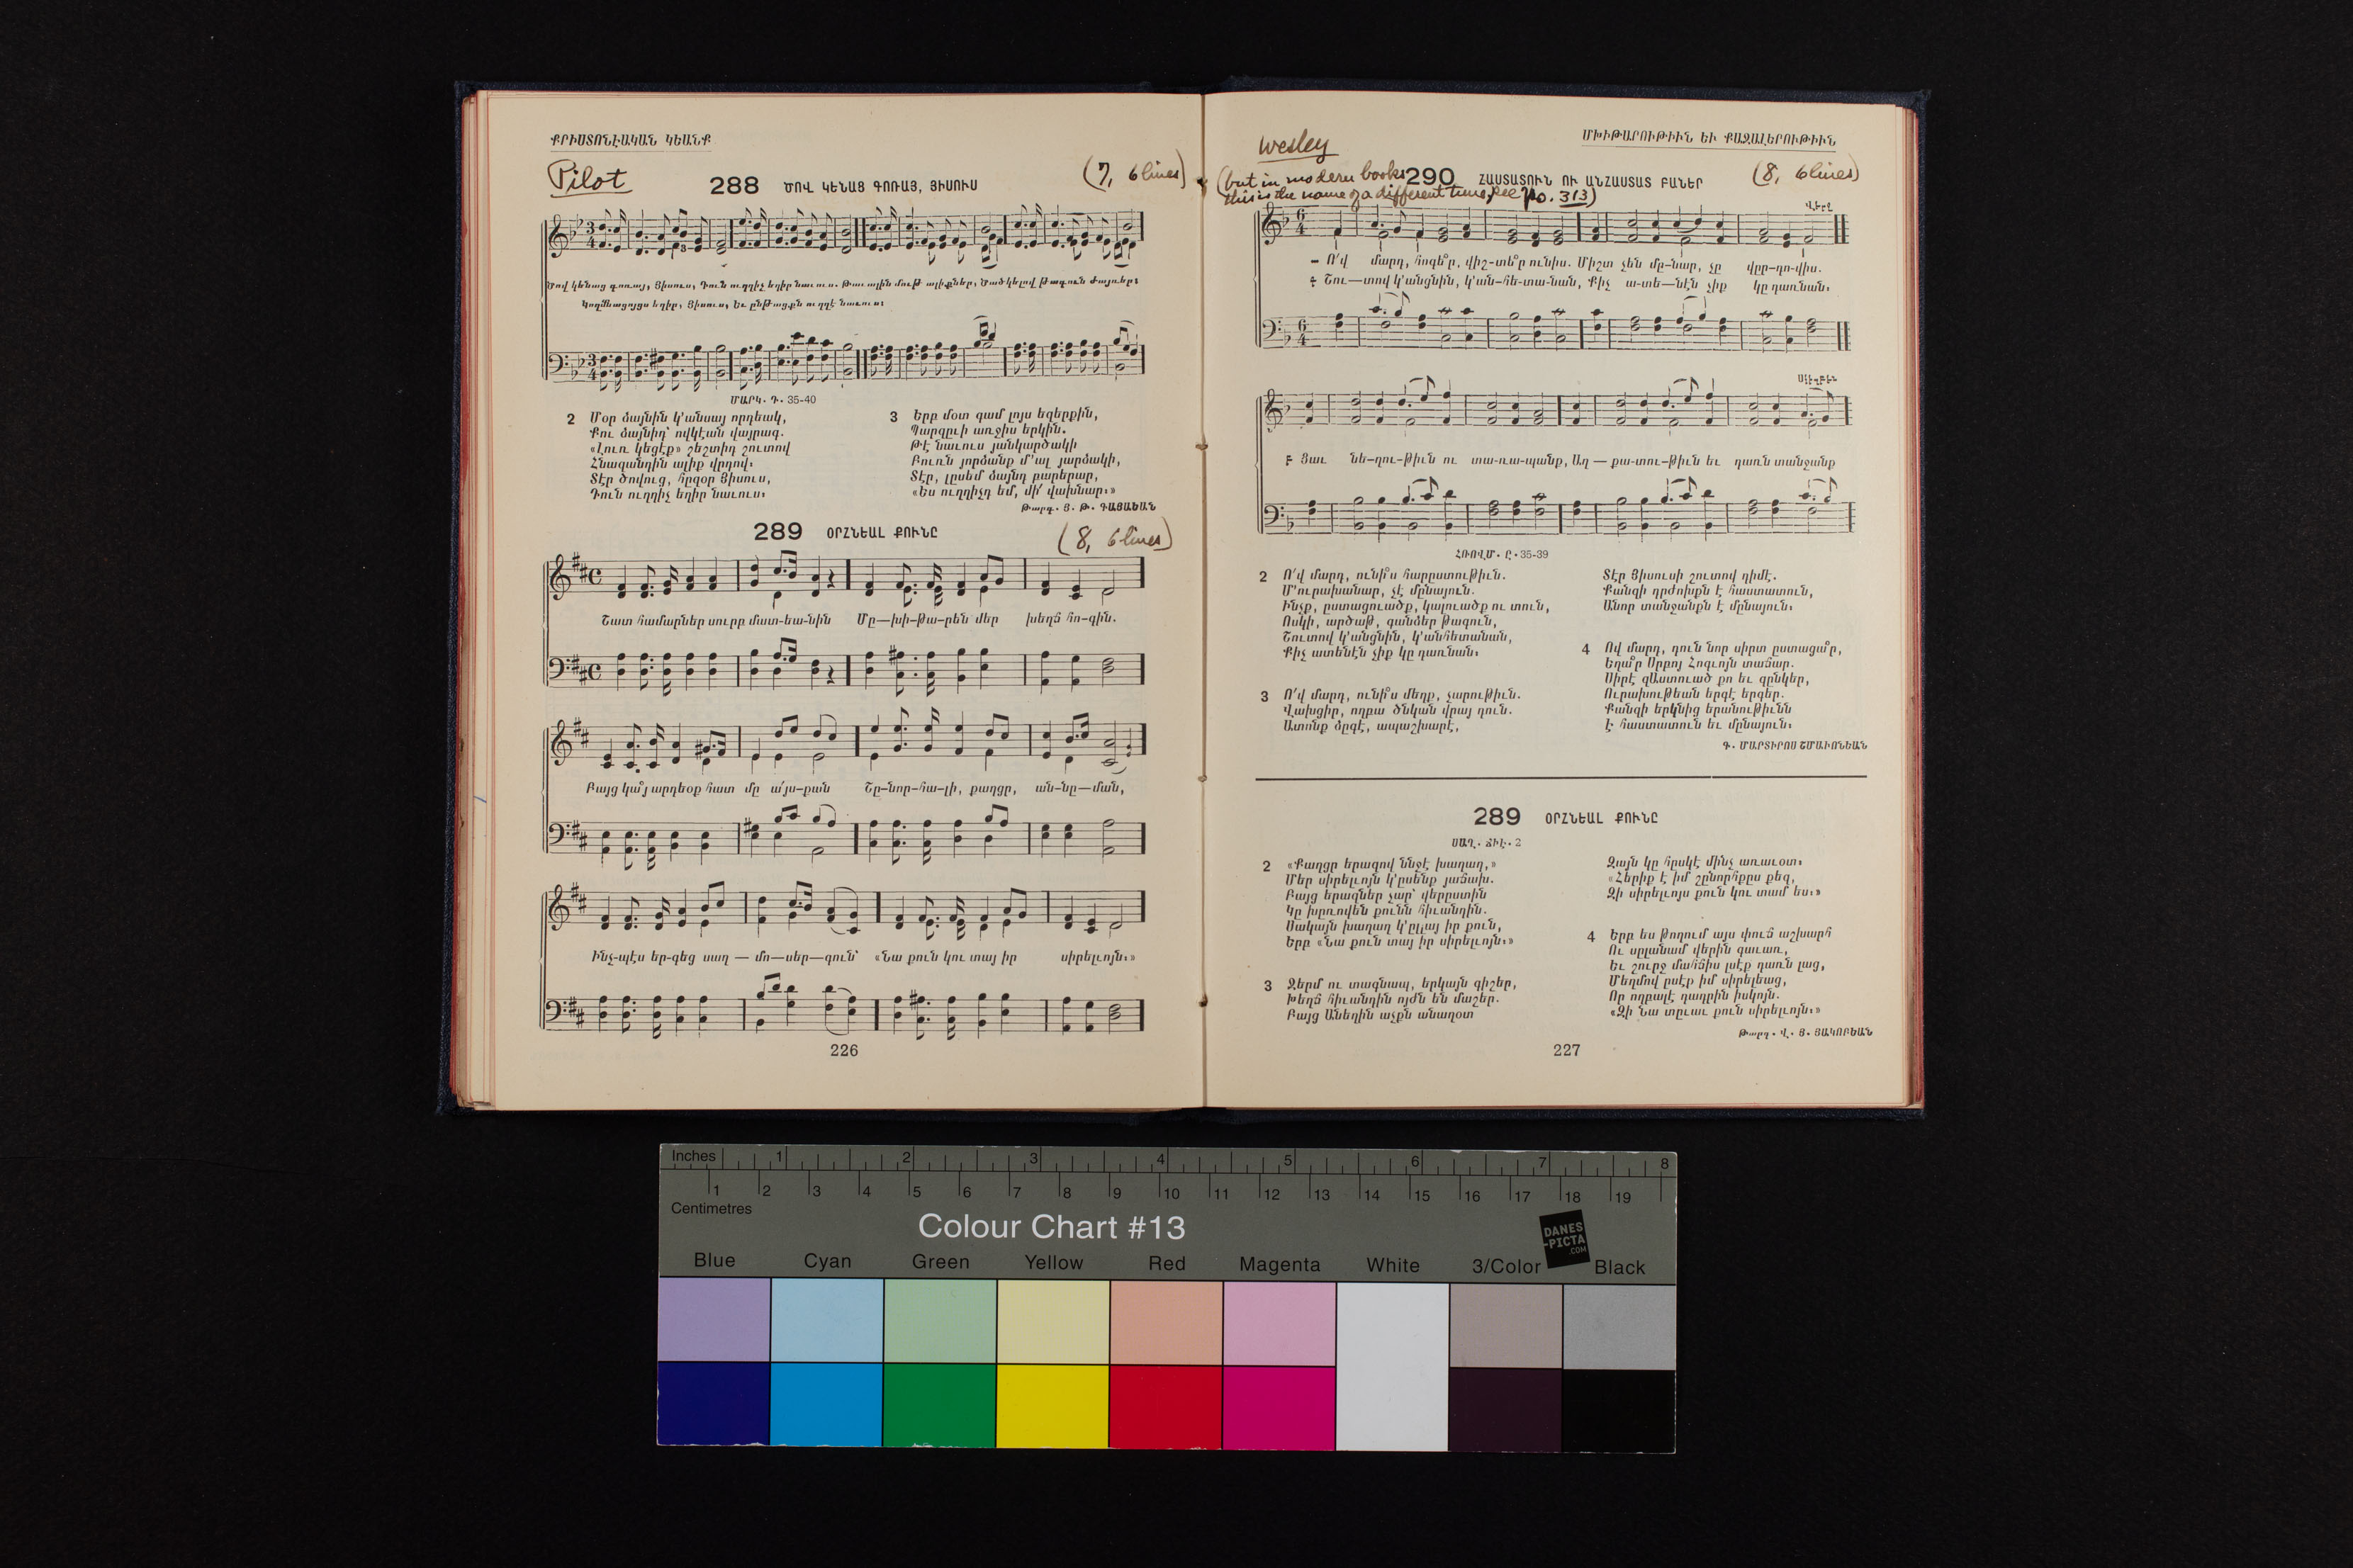 ՔՐԻՍՏՈՆԷԱԿԱՆ ԿԵԱՆՔ
Pilot
(7, 6 lines)
288 ԾՈՎ ԿԵՆԱՑ ԳՈՌԱՅ, ՅԻՍՈՒՍ
Ծով կենաց գոռայ, Յիսուս, Դուն ուղղիչ եղիր նաւուս. Թաւալին մութ ալիքներ, Ծածկելով թագուն ժայռեր։
Կողմնացոյցս եղիր, Յիսուս, Եւ ընթացքն ուղղէ նաւուս։
ՄԱՐԿ. Դ. 35-40
2 Մօր ձայնին կ՚անսայ որդեակ,
Քու ձայնիդ՝ ովկէան վայրագ.
«Լուռ կեցէք» շեշտիդ շուտով
Հնազանդին ալիք վրդով։
Տէր ծովուց, հըզօր Յիսուս,
Դուն ուղղիչ եղիր նաւուս։
3 Երբ մօտ գամ լոյս եզերքին,
Պարզըւի առջիս երկին.
Թէ նաւուս յանկարծակի
Բուռն յորձանք մ՚ալ յարձակի,
Տէր, լըսեմ ձայնդ բարերար,
«Ես ուղղիչդ եմ, մի՛ վախնար։»
Թարգ. Յ. Թ. ԳԱՅԱՅԵԱՆ
289 ՕՐՀՆԵԱԼ ՔՈՒՆԸ
(8, 6 lines)
Շատ համարներ սուրբ մատ-եա-նին Մը—խի-թա-րեն մեր խեղճ հո-գին.
Բայց կա՞յ արդեօք հատ մը ա՛յս-քան Շը-նոր-հա-լի, քաղցր, ան-նը—ման,
Ինչ-պէս եր-գեց սաղ — մո—սեր—գուն՝ «Նա քուն կու տայ իր սիրելւոյն։»
226
ՄԽԻԹԱՐՈՒԹԻՒՆ ԵՒ ՔԱՋԱԼԵՐՈՒԹԻՒՆ
Wesley
(but in modern books
this is the name of a different tune, see no. 313)
290 ՀԱՍՏԱՏՈՒՆ ՈՒ ԱՆՀԱՍՏԱՏ ԲԱՆԵՐ
(8, 6 lines)
Վերջ
Ո՛վ մարդ, հոգե՞ր, վիշ-տե՞ր ունիս. Միշտ չեն մը-նար, չը վըր-դո-վիս.
Շու—տով կ՚անցնին, կ՚ան-հե-տա-նան, Քիչ ա-տե—նէն չիք կը դառնան։
Սկիզբէն
Ցաւ նե-ղու-թիւն ու տա-ռա-պանք, Աղ — քա-տու-թիւն եւ դառն տանջանք
ՀՌՈՎՄ. Ը. 35-39
2 Ո՛վ մարդ, ունի՞ս հարըստութիւն.
Մ՚ուրախանար, չէ մընայուն.
Ինչք, ըստացուածք, կալուածք ու տուն,
Ոսկի, արծաթ, գանձեր թագուն,
Շուտով կ՚անցնին, կ՚անհետանան,
Քիչ ատենէն չիք կը դառնան։
3 Ո՛վ մարդ, ունի՞ս մեղք, չարութիւն.
Վախցիր, ողբա ծնկան վրայ դուն.
Ատոնք ձըգէ, ապաշխարէ,
Տէր Յիսուսի շուտով դիմէ.
Քանզի դըժոխքն է հաստատուն,
Անոր տանջանքն է մընայուն։
4 Ով մարդ, դուն նոր սիրտ ըստացա՞ր,
Եղա՞ր Սրբոյ Հոգւոյն տաճար.
Սիրէ զԱստուած քո եւ զընկեր,
Ուրախութեան երգէ երգեր.
Քանզի երկնից երանութիւնն
է հաստատուն եւ մընայուն։
Գ. ՄԱՐՏԻՐՈՍ ՇՄԱՒՈՆԵԱՆ
289 ՕՐՀՆԵԱԼ ՔՈՒՆԸ
ՍԱՂ. ՃԻԷ. 2
2 «Քաղցր երազով ննջէ խաղաղ,»
Մեր սիրելւոյն կ՚ըսենք յաճախ.
Բայց երազներ չար՝ վերըստին
Կը խըռովեն քունն հիւանդին.
Սակայն խաղաղ կ՚ըլլայ իր քուն,
Երբ «Նա քուն տայ իր սիրելւոյն։»
3 Ջերմ ու տագնապ, երկայն գիշեր,
Խեղճ հիւանդին ոյժն են մաշեր.
Բայց Անեղին աչքն անաղօտ
Զայն կը հըսկէ մինչ առաւօտ։
«Հերիք է իմ շընորհքըս քեզ,
Զի սիրելւոյս քուն կու տամ ես։»
4 Երբ ես թողում այս փուճ աշխարհ
Ու սըլանամ վերին գաւառ,
Եւ շուրջ մահճիս լսէք դառն լաց,
Մեղմով ըսէք իմ սիրելեաց,
Որ ողբալէ դադրին իսկոյն.
«Զի Նա տըւաւ քուն սիրելւոյն։»
Թարգ. Վ. Յ. ՅԱԿՈԲԵԱՆ
227
Inches 1 2 3 4 5 6 7 8
1 2 3 4 5 6 7 8 9 10 11 12 13 14 15 16 17 18 19
Centimetres
Colour Chart #13
DANES
-PICTA
.COM
Blue Cyan Green Yellow Red Magenta White 3/Color Black